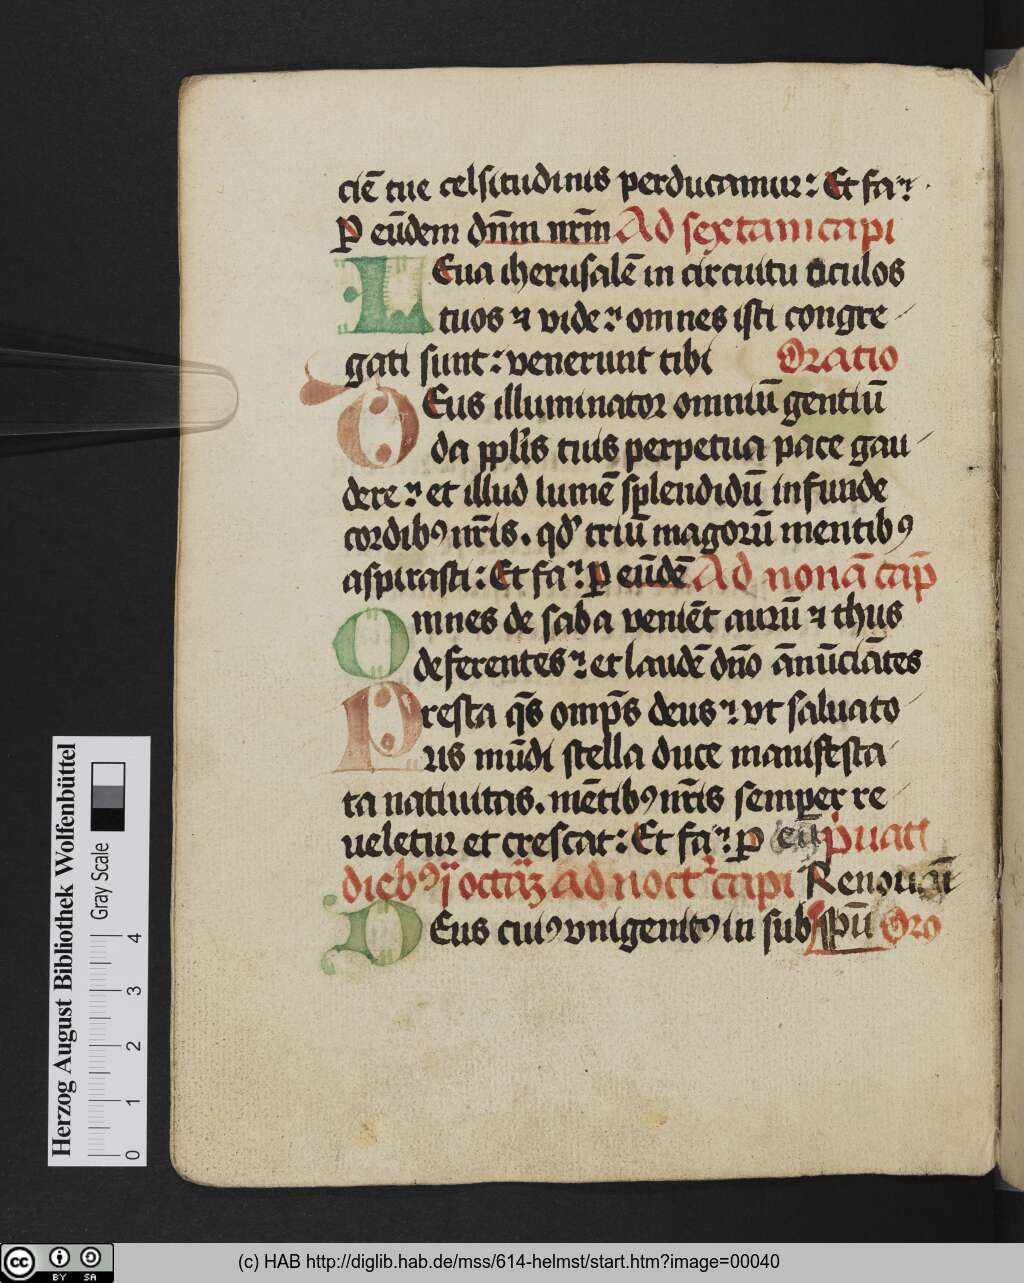 ciē tue celsitudinis perducamur: Et fa⁊.
P eūdem dn̄m nr̄m Ad sextam capi
LEua iherusalē in circuitu oculos
tuos ⁊ vide: omnes isti congre
gati sunt: venerunt tibi Oratio
DEus illuminator omniū gentiū
da pplis tuis perpetua pace gau
dere: et illud lumē splendidū infunde
cordibꝰ nr̄is. qd triū magorū mentibꝰ
aspirasti: Et fa⁊. ꝑ eūdē Ad nonā cap̄
Omnes de saba veniēt aurū ⁊ thus
deferentes: et laudē dn̄o ān̄ūciātes
Presta q̄s omp̄s deus: vt saluato
ris mūdi stella duce manifesta
ta natiuitas. mētibꝰ nr̄is semper re
ueletur et crescat: Et fa⁊. ꝑ eū
diebꝰ Ad noct capi Renouari
DEus cuiꝰ vnigenitꝰ in sub spū Oro
Herzog August Bibliothek Wolfenbüttel
Gray Scale
0 1 2 3 4
cc BY SA
(c) HAB http://diglib.hab.de/mss/614-helmst/start.htm?image=00040